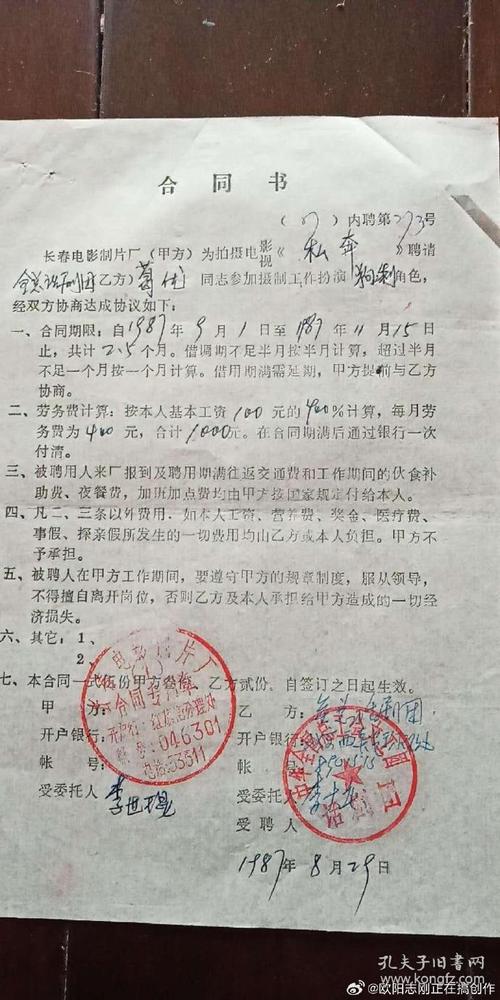 合同书
(87)内聘第273号
长春电影制片厂(甲方)为拍摄电影视《私奔》聘请
全总话剧团(乙方)葛优同志参加摄制工作扮演 角色,
经双方协商达成协议如下:
一、合同期限:自1987年9月1日至1987年11月15日
止,共计2.5个月。借调期不足半月按半月计算,超过半月
不足一个月按一个月计算。借用期满需延期,甲方提前与乙方
协商。
二、劳务费计算:按本人基本工资100元的400%计算,每月劳
务费为400元,合计1000元。在合同期满后通过银行一次
付清。
三、被聘用人来厂报到及聘用期满往返交通费和工作期间的伙食补
助费、夜餐费,加班加点费均由甲方按国家规定付给本人。
四、凡二、三条以外费用,如本人工资、营养费、奖金、医疗费、
事假、探亲假所发生的一切费用均由乙方或本人负担。甲方不
予承担。
五、被聘人在甲方工作期间,要遵守甲方的规章制度,服从领导,
不得擅自离开岗位,否则乙方及本人承担给甲方造成的一切经
济损失。
六、其它:1、
2、
七、本合同一式伍份甲方叁份,乙方贰份,自签订之日起生效。
甲方:
开户银行:
帐号:
受委托人
电影制片厂
合同专用章
开户行:红旗街办理处
帐号:046301
电话:53311
乙方:全总话剧团
开户银行:
帐号:
受委托人
受聘人
话剧团
1987年8月29日
孔夫子旧书网
@欧阳志刚正在搞创作